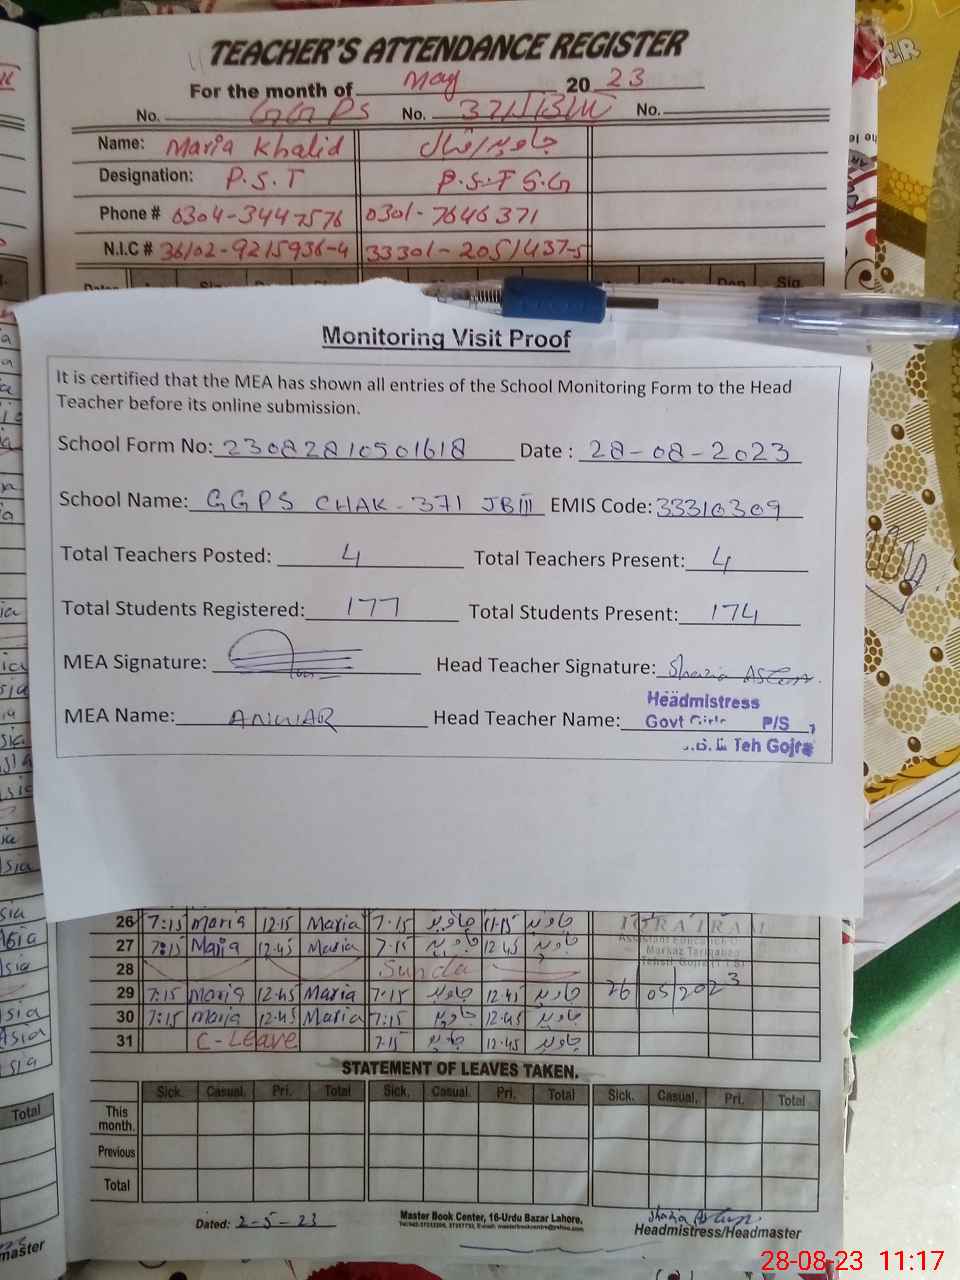 TEACHER'S ATTENDANCE REGISTER
For the month of May 2023
No. GGPS No. 371/JB/III No.
Name: Maria Khalid جاوید اقبال
Designation: P.S.T P.S.T S.G
Phone # 0304-3447576 0301-7646371
N.I.C # 36102-9215936-4 33301-2051437-5
Monitoring Visit Proof
It is certified that the MEA has shown all entries of the School Monitoring Form to the Head
Teacher before its online submission.
School Form No: 23082810501618 Date : 28-08-2023
School Name: GGPS CHAK-371 JBIII EMIS Code: 33310309
Total Teachers Posted: 4 Total Teachers Present: 4
Total Students Registered: 177 Total Students Present: 174
MEA Signature: Head Teacher Signature: Shazia
MEA Name: ANWAR Head Teacher Name:
Headmistress
Govt Girls P/S
Teh Gojra
26 7:15 Maria 12-15 Maria 7-15 جاوید 11-15 جاوید
IQRA IRAM
27 7:15 Maria 12.45 Maria 7-15 جاوید 12.45 جاوید
28 Sunda
29 7:15 Maria 12.45 Maria 7-15 جاوید 12.45 جاوید 26 05 2023
30 7:15 Maria 12.45 Maria 7:15 جاوید 12.45 جاوید
31 C-Leave 7.15 جاوید 12.45 جاوید
STATEMENT OF LEAVES TAKEN.
Sick. Casual. Pri. Total Sick. Casual. Pri. Total Sick. Casual. Pri. Total
This
month.
Previous
Total
Dated: 2-5-23
Master Book Center, 16-Urdu Bazar Lahore.
Headmistress/Headmaster
28-08-23 11:17